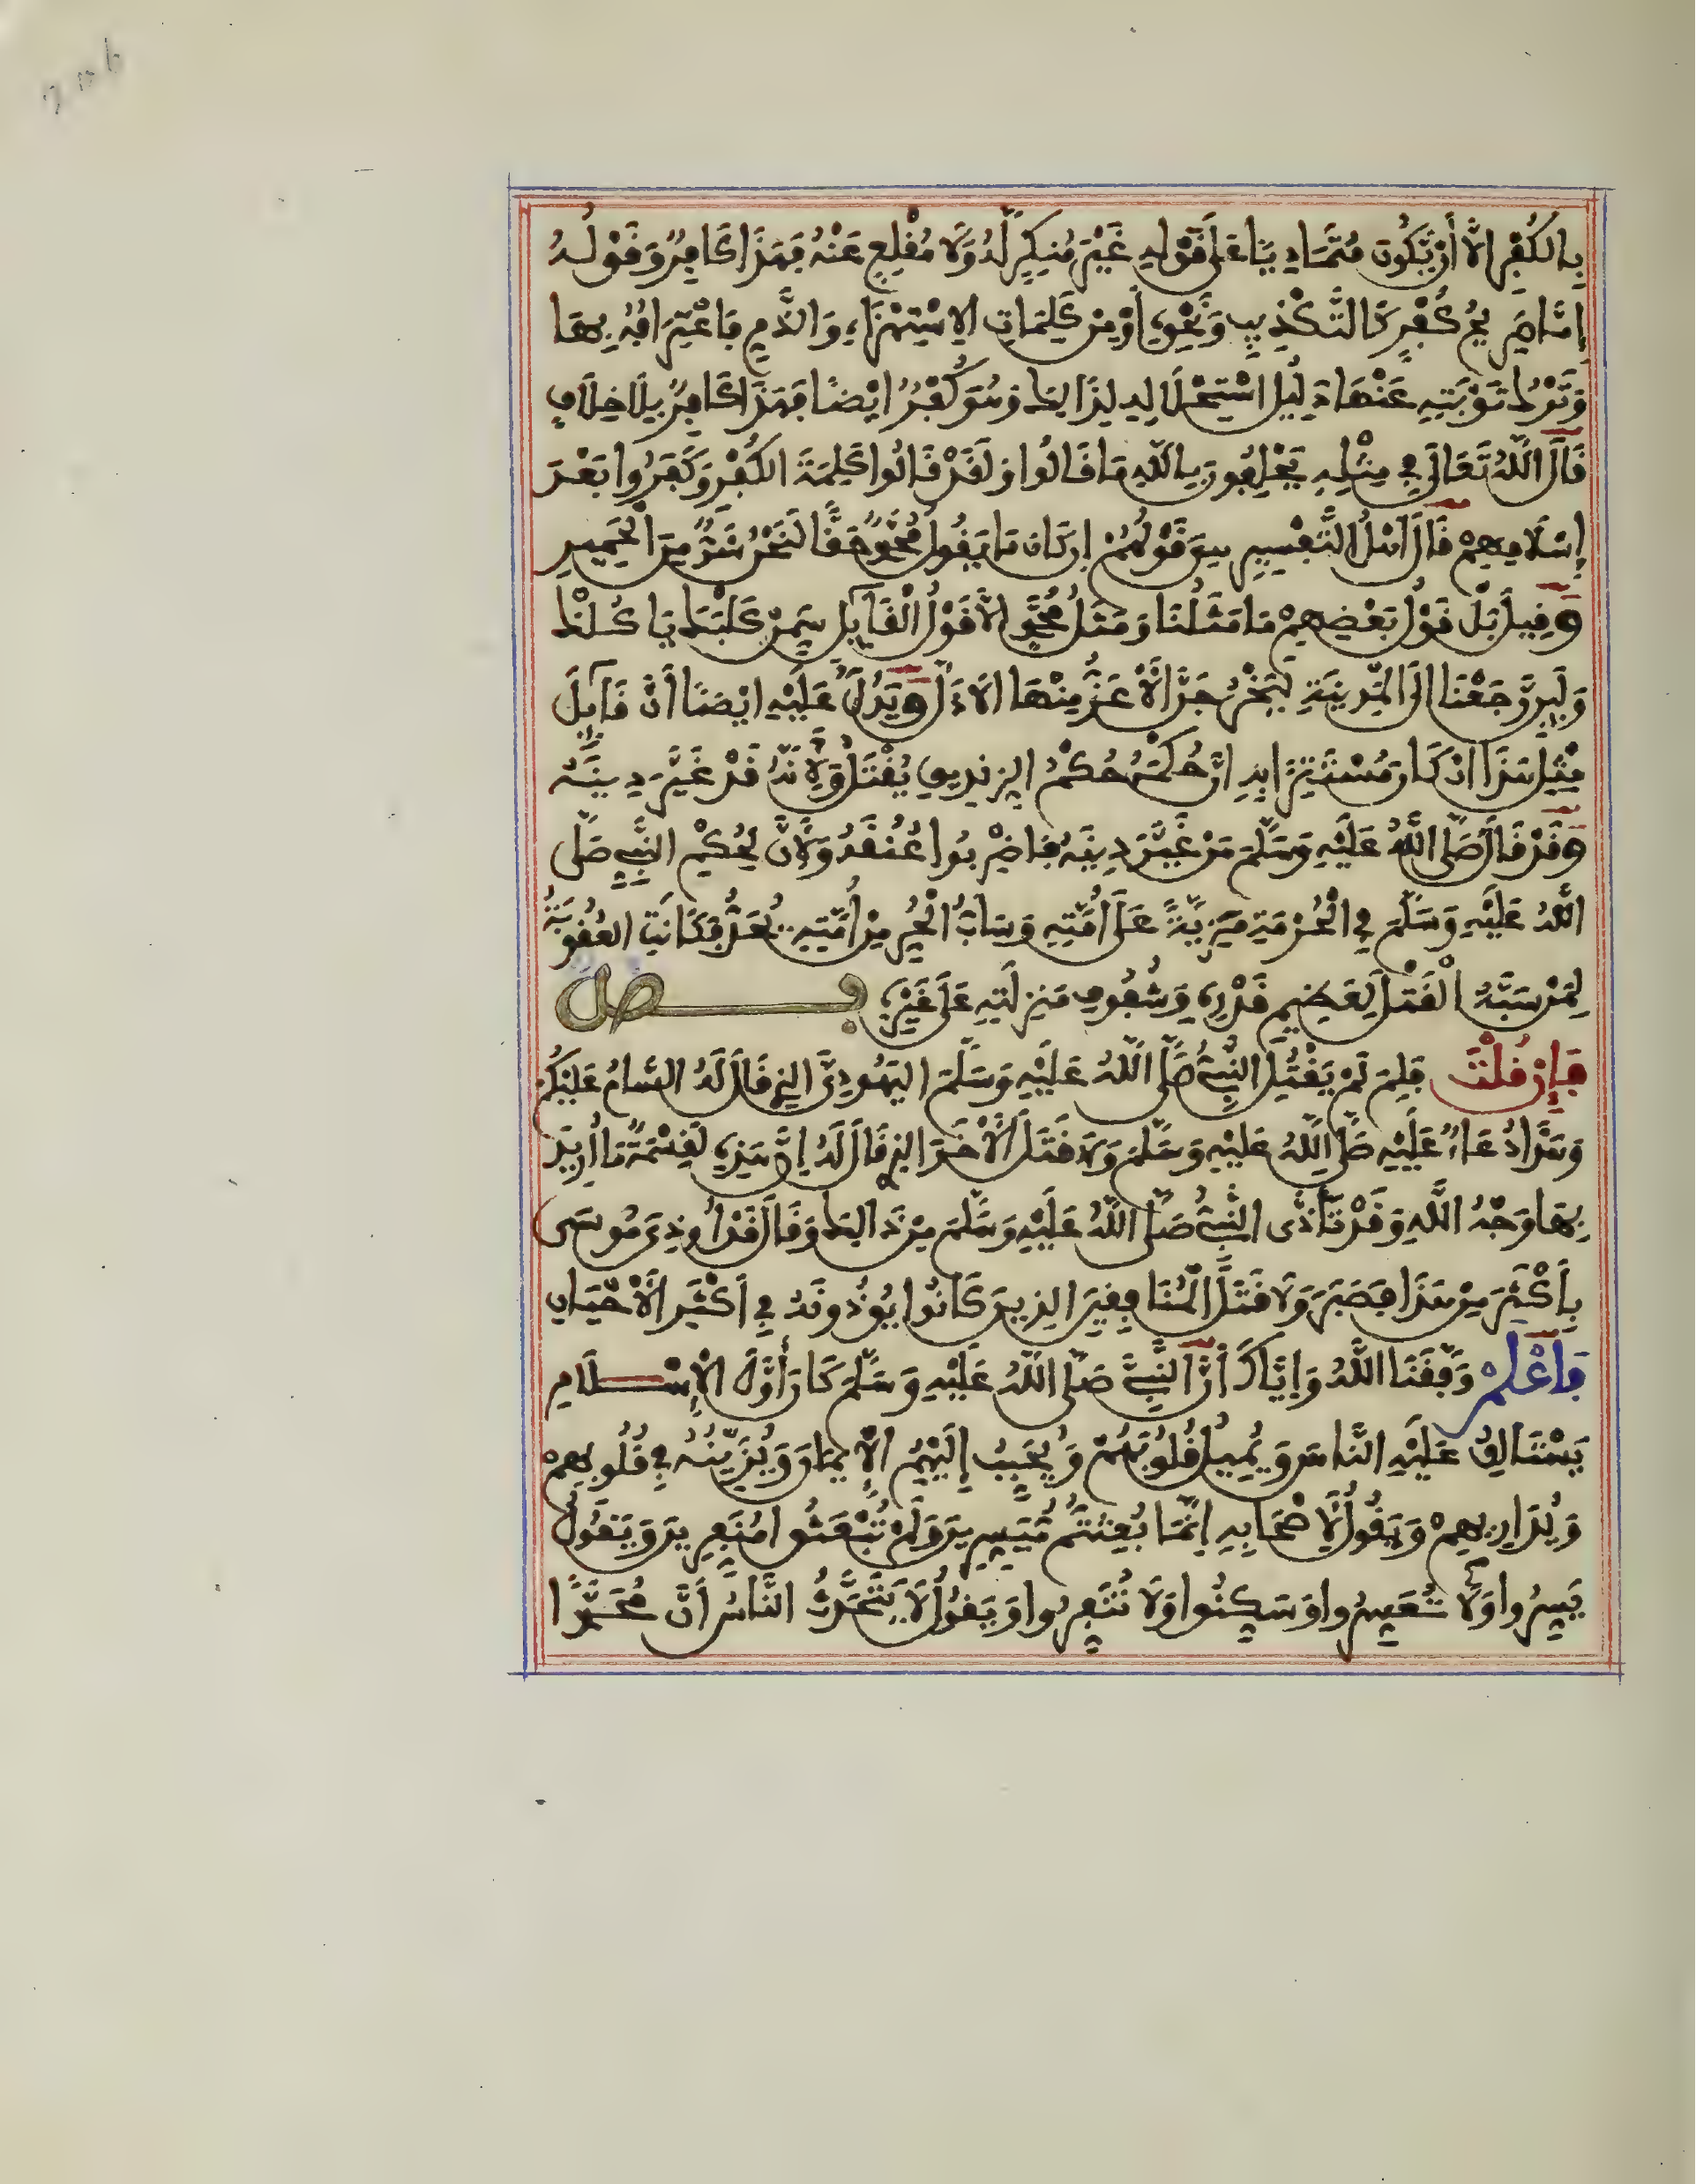 بِالْكُفْرِ إِلَّا أَنْ يَّكُونَ مُتَمَادِيًا عَلَى قَوْلِهِ غَيْرَ مُنْكِرٍ لَّهُ وَلَا مُقْلِعٍ عَنْهُ فَهَذَا كَافِرٌ وَقَوْلُهُ
إِمَّا صَرِيحُ كُفْرٍ كَالتَّكْذِيبِ وَنَحْوِهِ أَوْ مِنْ كَلِمَاتِ الِاسْتِهْزَاءِ وَالذَّمِّ فَاعْتِرَافُهُ بِهَا
وَتَرْكُ تَوْبَتِهِ عَنْهَا دَلِيلُ اسْتِحْلَالِهِ لِذَالِكَ وَهُوَ كُفْرٌ ايْضًا فَهَذَا كَافِرٌ بِلَا خِلَافٍ
قَالَ اللَّهُ تَعَالَى فِي مِثْلِهِ يَحْلِفُونَ بِاللَّهِ مَا قَالُوا وَلَقَدْ قَالُوا كَلِمَةَ الْكُفْرِ وَكَفَرُوا بَعْدَ
إِسْلَامِهِمْ قَالَ أَهْلُ التَّفْسِيرِ هِيَ قَوْلُهُمْ إِن كَانَ مَا يَقُولُ مُحَمَّدٌ حَقًّا لَنَحْنُ شَرٌّ مِنَ الْحَمِيرِ
وَقِيلَ بَلْ قَوْلُ بَعْضِهِمْ مَا مَثَلُنَا وَمَثَلُ مُحَمَّدٍ إِلَّا قَوْلُ الْقَائِلِ سَمِّنْ كَلْبَكَ يَاكُلْكَ
وَلَئِن رَّجَعْنَا إِلَى الْمَدِينَةِ لَيُخْرِجَنَّ الْأَعَزُّ مِنْهَا الْأَذَلَّ وَيَدُلُّ عَلَيْهِ ايْضًا أَنَّ قَائِلَ
مِثْلِ هَذَا إِنْ كَانَ مُسْتَتِرًا بِهِ أَنَّ حُكْمَهُ حُكْمُ الزِنْدِيقِ يُقْتَلُ وَلِأَنَّهُ قَدْ غَيَّرَ دِينَهُ
وَقَدْ قَالَ صَلَّى اللَّهُ عَلَيْهِ وَسَلَّمَ مَنْ غَيَّرَ دِينَهُ فَاضْرِبُوا عُنُقَهُ وَلِأَنَّ لِحُكْمِ النَّبِيِّ صَلَّى
اللَّهُ عَلَيْهِ وَسَلَّمَ فِي الْحُرْمَةِ مَزِيَّةً عَلَى أُمَّتِهِ وَسَابُّ الْحُرِّ مِنْ أُمَّتِهِ يُحَدُّ فَكَانَتِ الْعُقُوبَةُ
لِمَنْ سَبَّهُ الْقَتْلَ لِعَظِيمِ قَدْرِهِ وَشُفُوفِ مَنْزِلَتِهِ عَلَى غَيْرِهِ فصل
فَإِنْ قُلْتَ فَلِمَ لَمْ يَقْتُلِ النَّبِيُّ صَلَّى اللَّهُ عَلَيْهِ وَسَلَّمَ الْيَهُودِيَّ الَّذِي قَالَ لَهُ السَّامُ عَلَيْكُمْ
وَهَذَا دُعَاءٌ عَلَيْهِ صَلَّى اللَّهُ عَلَيْهِ وَسَلَّمَ وَلَا قَتَلَ الْأَخَرَ الَّذِي قَالَ لَهُ إِنَّ هَذِهِ لَقِسْمَةٌ مَا أُرِيدَ
بِهَا وَجْهُ اللَّهِ وَقَدْ تَأَذَّى النَّبِيُّ صَلَّى اللَّهُ عَلَيْهِ وَسَلَّمَ مِنْ ذَالِكَ وَقَالَ قَدْ أُوذِيَ مُوسَى
بِأَكْثَرَ مِنْ هَذَا فَصَبَرَ وَلَا قَتَلَ الْمُنَافِقِينَ الَّذِينَ كَانُوا يُوذُونَهُ فِي أَكْثَرِ الْأَحْيَانِ
فَاعْلَمْ وَفَّقَنَا اللَّهُ وَإِيَّاكَ أَنَّ النَّبِيَّ صَلَّى اللَّهُ عَلَيْهِ وَسَلَّمَ كَانَ أَوَّلَ الْإِسْلَامِ
يَسْتَالِفُ عَلَيْهِ النَّاسَ وَيُمِيلُ قُلُوبَهُمْ وَيُحَبِّبُ إِلَيْهِمُ الْإِيمَانَ وَيُزَيِّنُهُ فِي قُلُوبِهِمْ
وَيُدَارِيهِمْ وَيَقُولُ لِأَصْحَابِهِ إِنَّمَا بُعِثْتُمْ مُيَسِّرِينَ وَلَمْ تُبْعَثُوا مُنَفِّرِينَ وَيَقُولُ
يَسِّرُوا وَلَا تُعَسِّرُوا وَسَكِّنُوا وَلَا تُنَفِّرُوا وَيَقُولُ لَا يَتَحَدَّثُ النَّاسُ أَنَّ مُحَمَّدًا